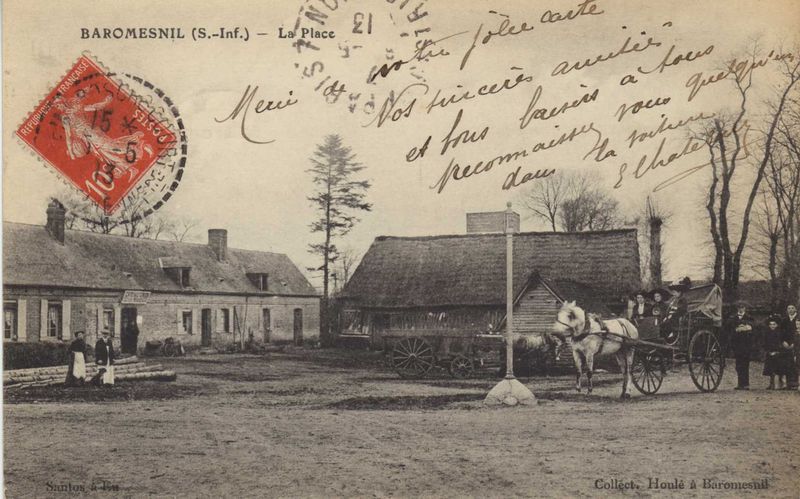 BAROMESNIL (S.-Inf.) — La Place
Merci de votre jolie carte
Nos sincères amitiés
et bons baisers à tous
reconnaissez vous quelqu'un
dans la voiture
REPUBLIQUE FRANÇAISE
POSTES
10
15 *
Santos à Eu
Collect. Houlé à Baromesnil